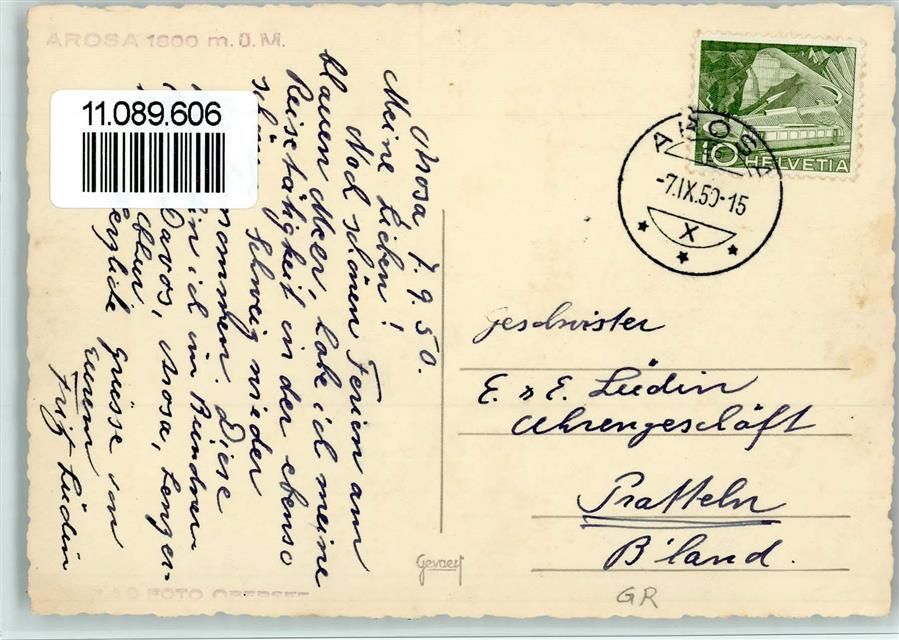 AROSA 1800 m. ü. M.
11.089.606
Arosa, 7. 9. 50.
Meine Lieben!
Nach schönen Ferien am
blauen Meer, habe ich meine
Reisetätigkeit in der ebenso
schönen Schweiz wieder
nommen. Diese
bin ich im Bündner
Davos, Arosa, Lenzer-
Chur
Herzliche Grüsse von
Eurem
Fritz Lüdin
HELVETIA
10
AROSA
-7.IX.50-15
X
Geschwister
E. & E. Lüdin
Uhrengeschäft
Pratteln
B'land.
Gevaert
GR
FOTO